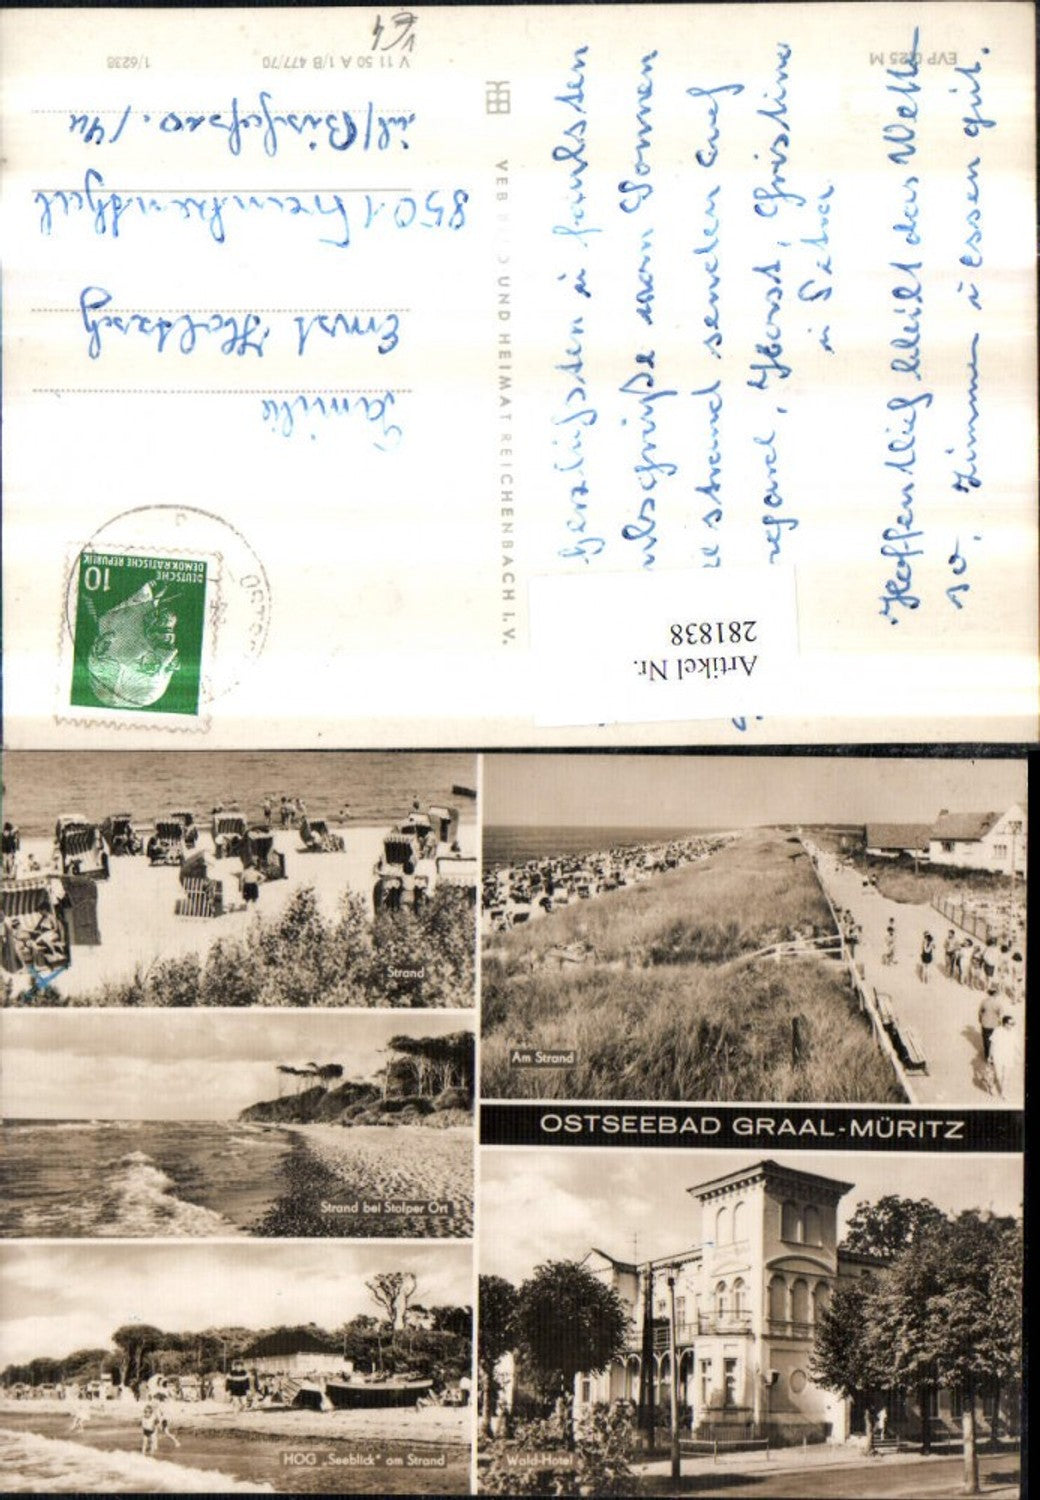 V 11 50 A 1/B 477/70
1/6238
EVP 0,25 M
VEB BILD UND HEIMAT REICHENBACH I. V.
DEUTSCHE
DEMOKRATISCHE REPUBLIK
10
Familie
Ernst
8501
Herzlichsten
Urlaubsgrüße vom Sonnen
strand senden Euch
Horst, Christine
u Petra
Hoffentlich bleibt das Wetter
so, Zimmer u Essen gut.
Artikel Nr.
281838
Strand
Am Strand
OSTSEEBAD GRAAL-MÜRITZ
Strand bei Stolper Ort
HOG „Seeblick" am Strand
Wald-Hotel